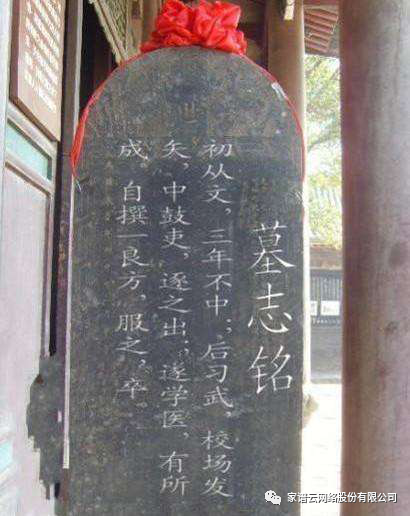 墓志铭
初从文，三年不中；后习武，校场发
矣，中鼓吏，逐之出；遂学医，有所
成 自撰一良方，服之，卒
家谱云网络股份有限公司